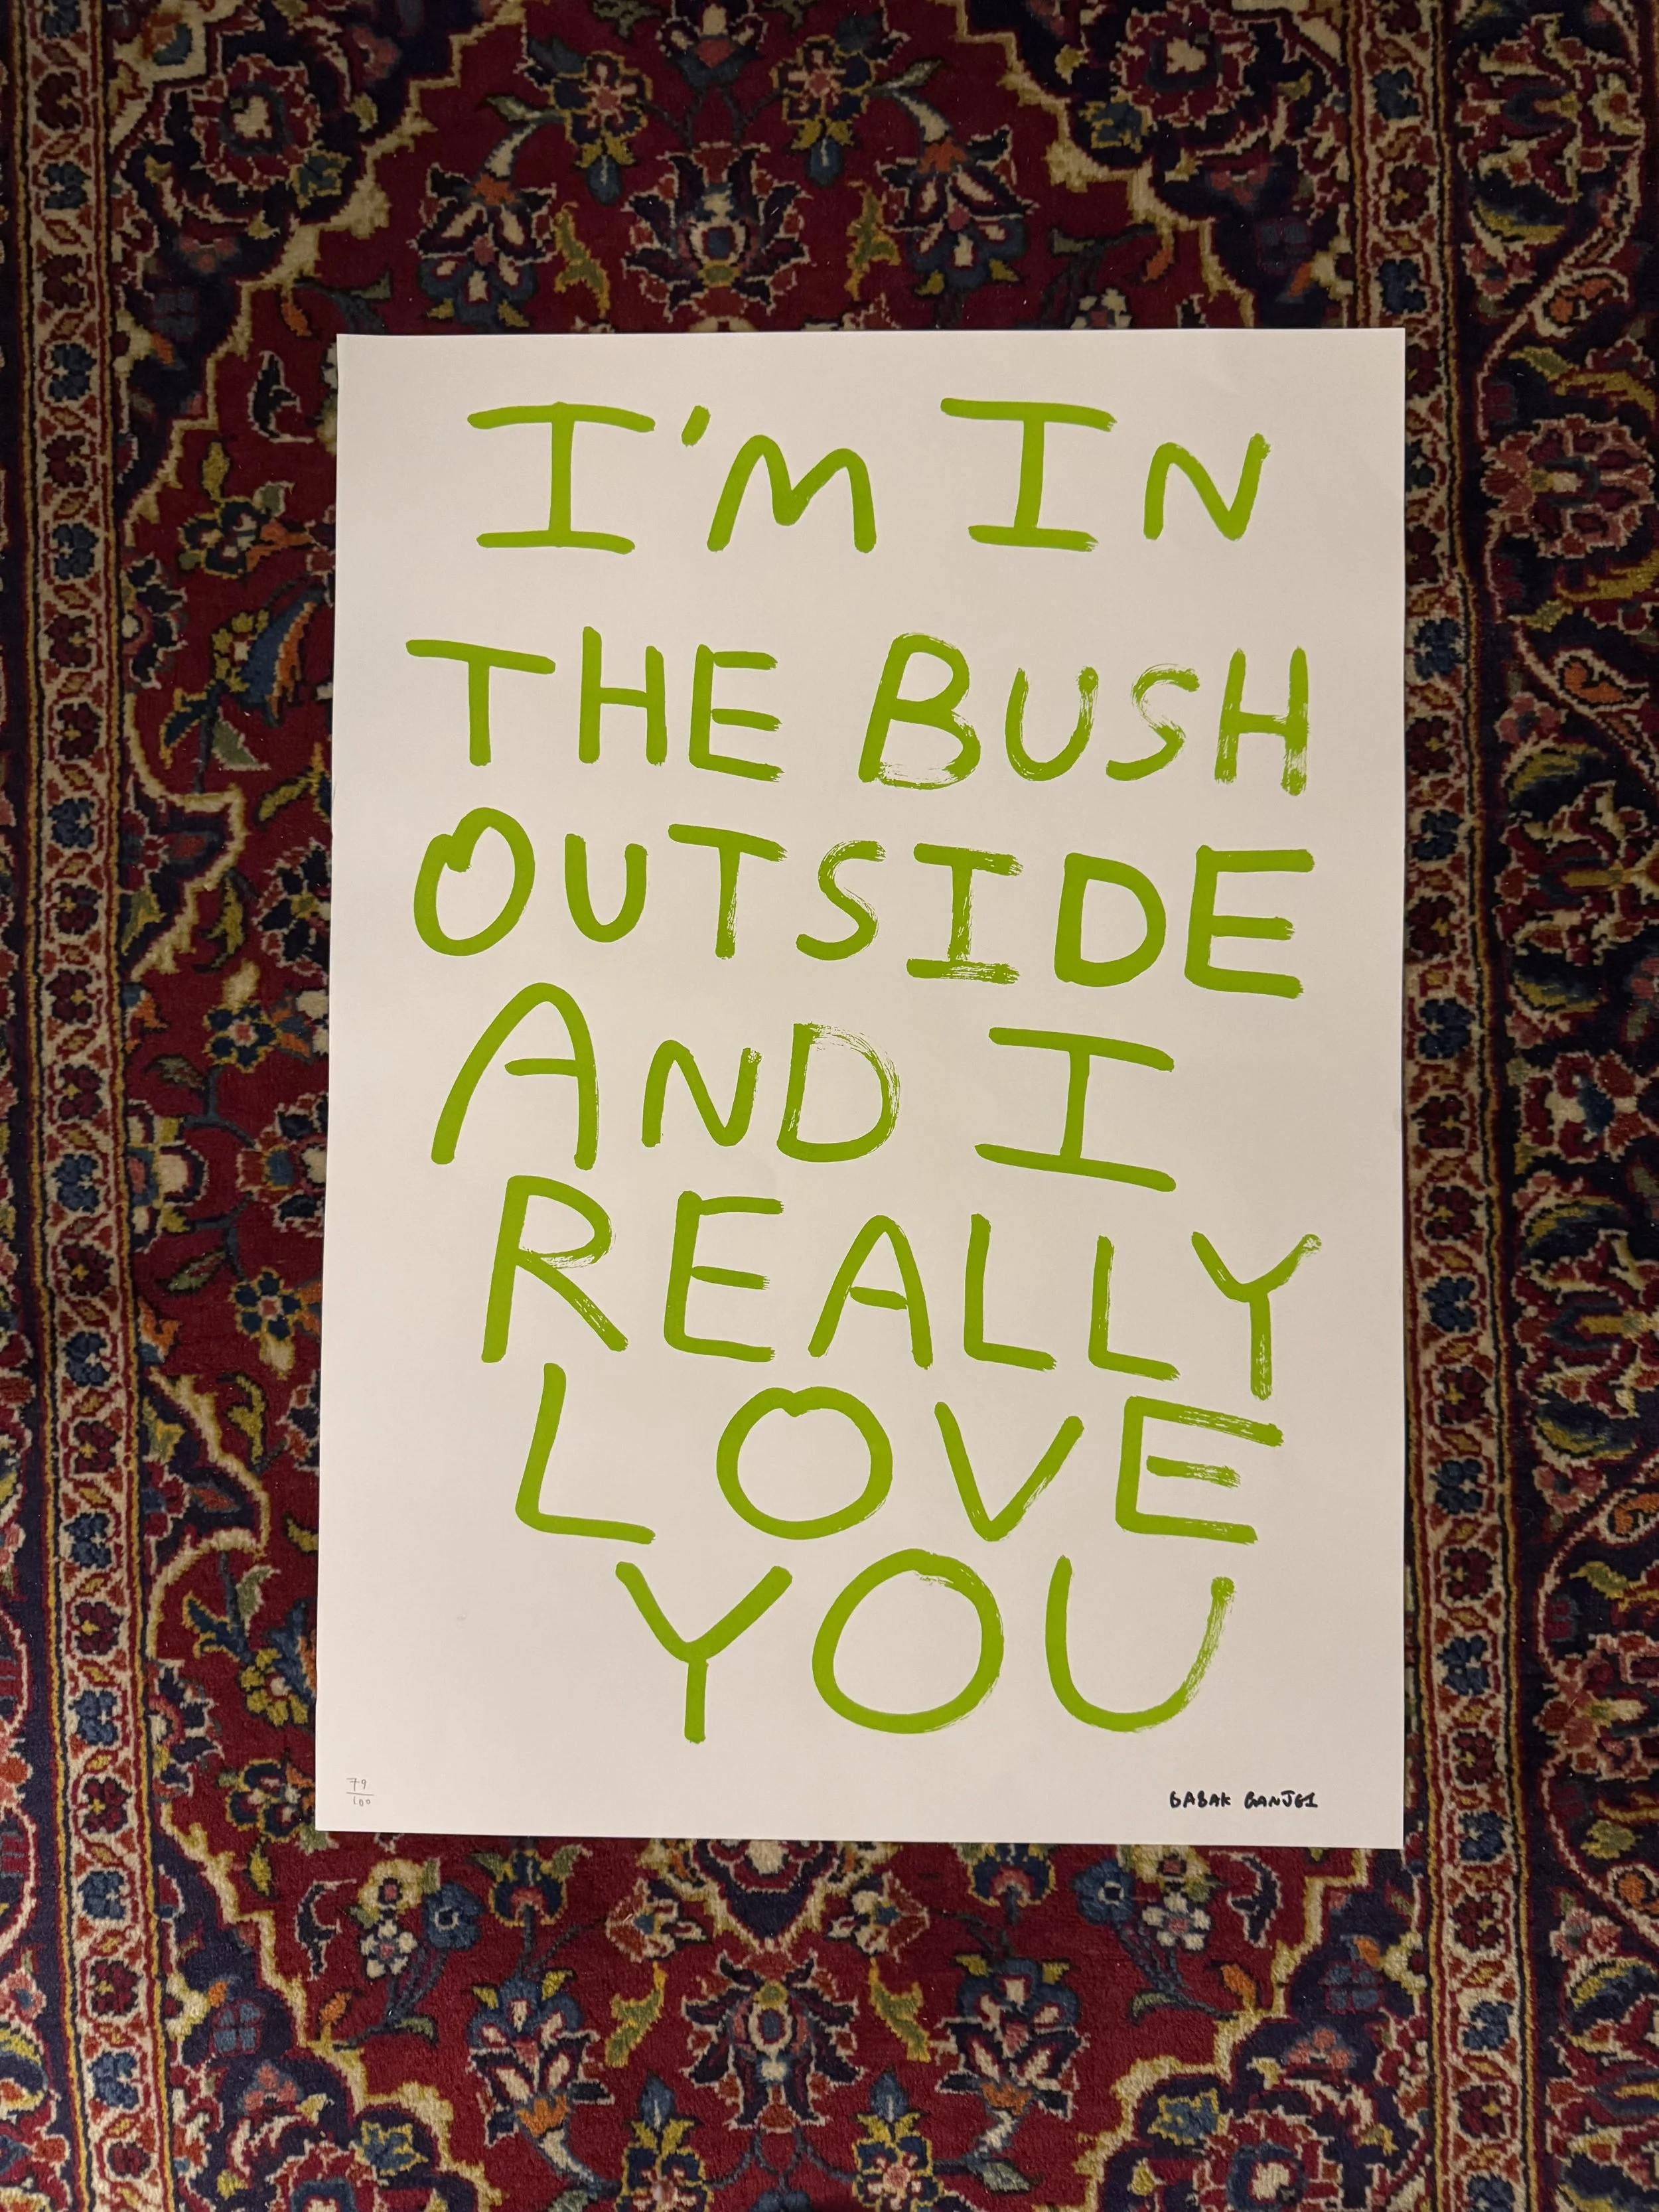 I'M IN
THE BUSH
OUTSIDE
AND I
REALLY
LOVE
YOU
79
100
BABAK GANJEI